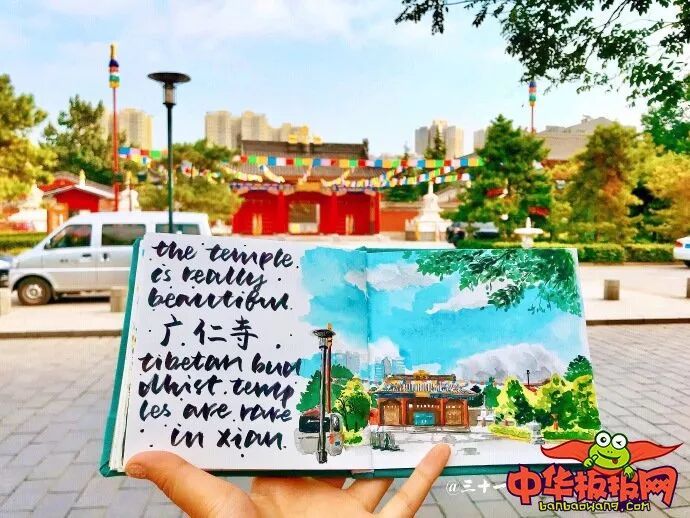 the temple
is really
beautiful.
广仁寺
tibetan bud
dhist temp
les are rare
in xian
@三十一
中华板报网
banbaowang.com